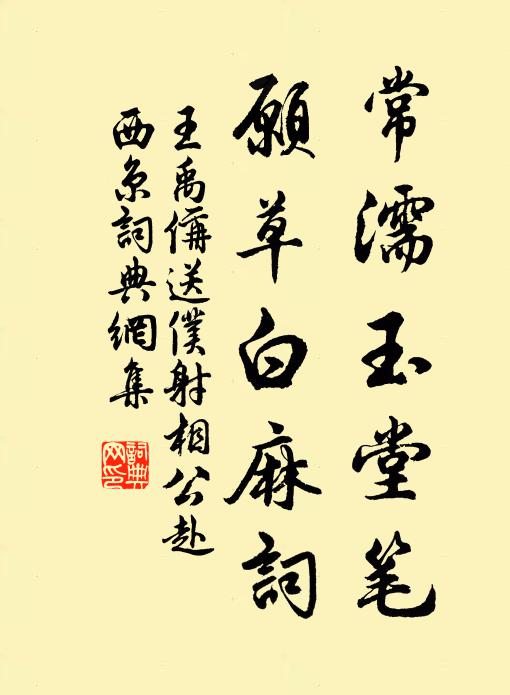 常濡玉堂笔
願草白麻詞
王禹偁送僕射相公赴
西京詞典網集
詞典網印